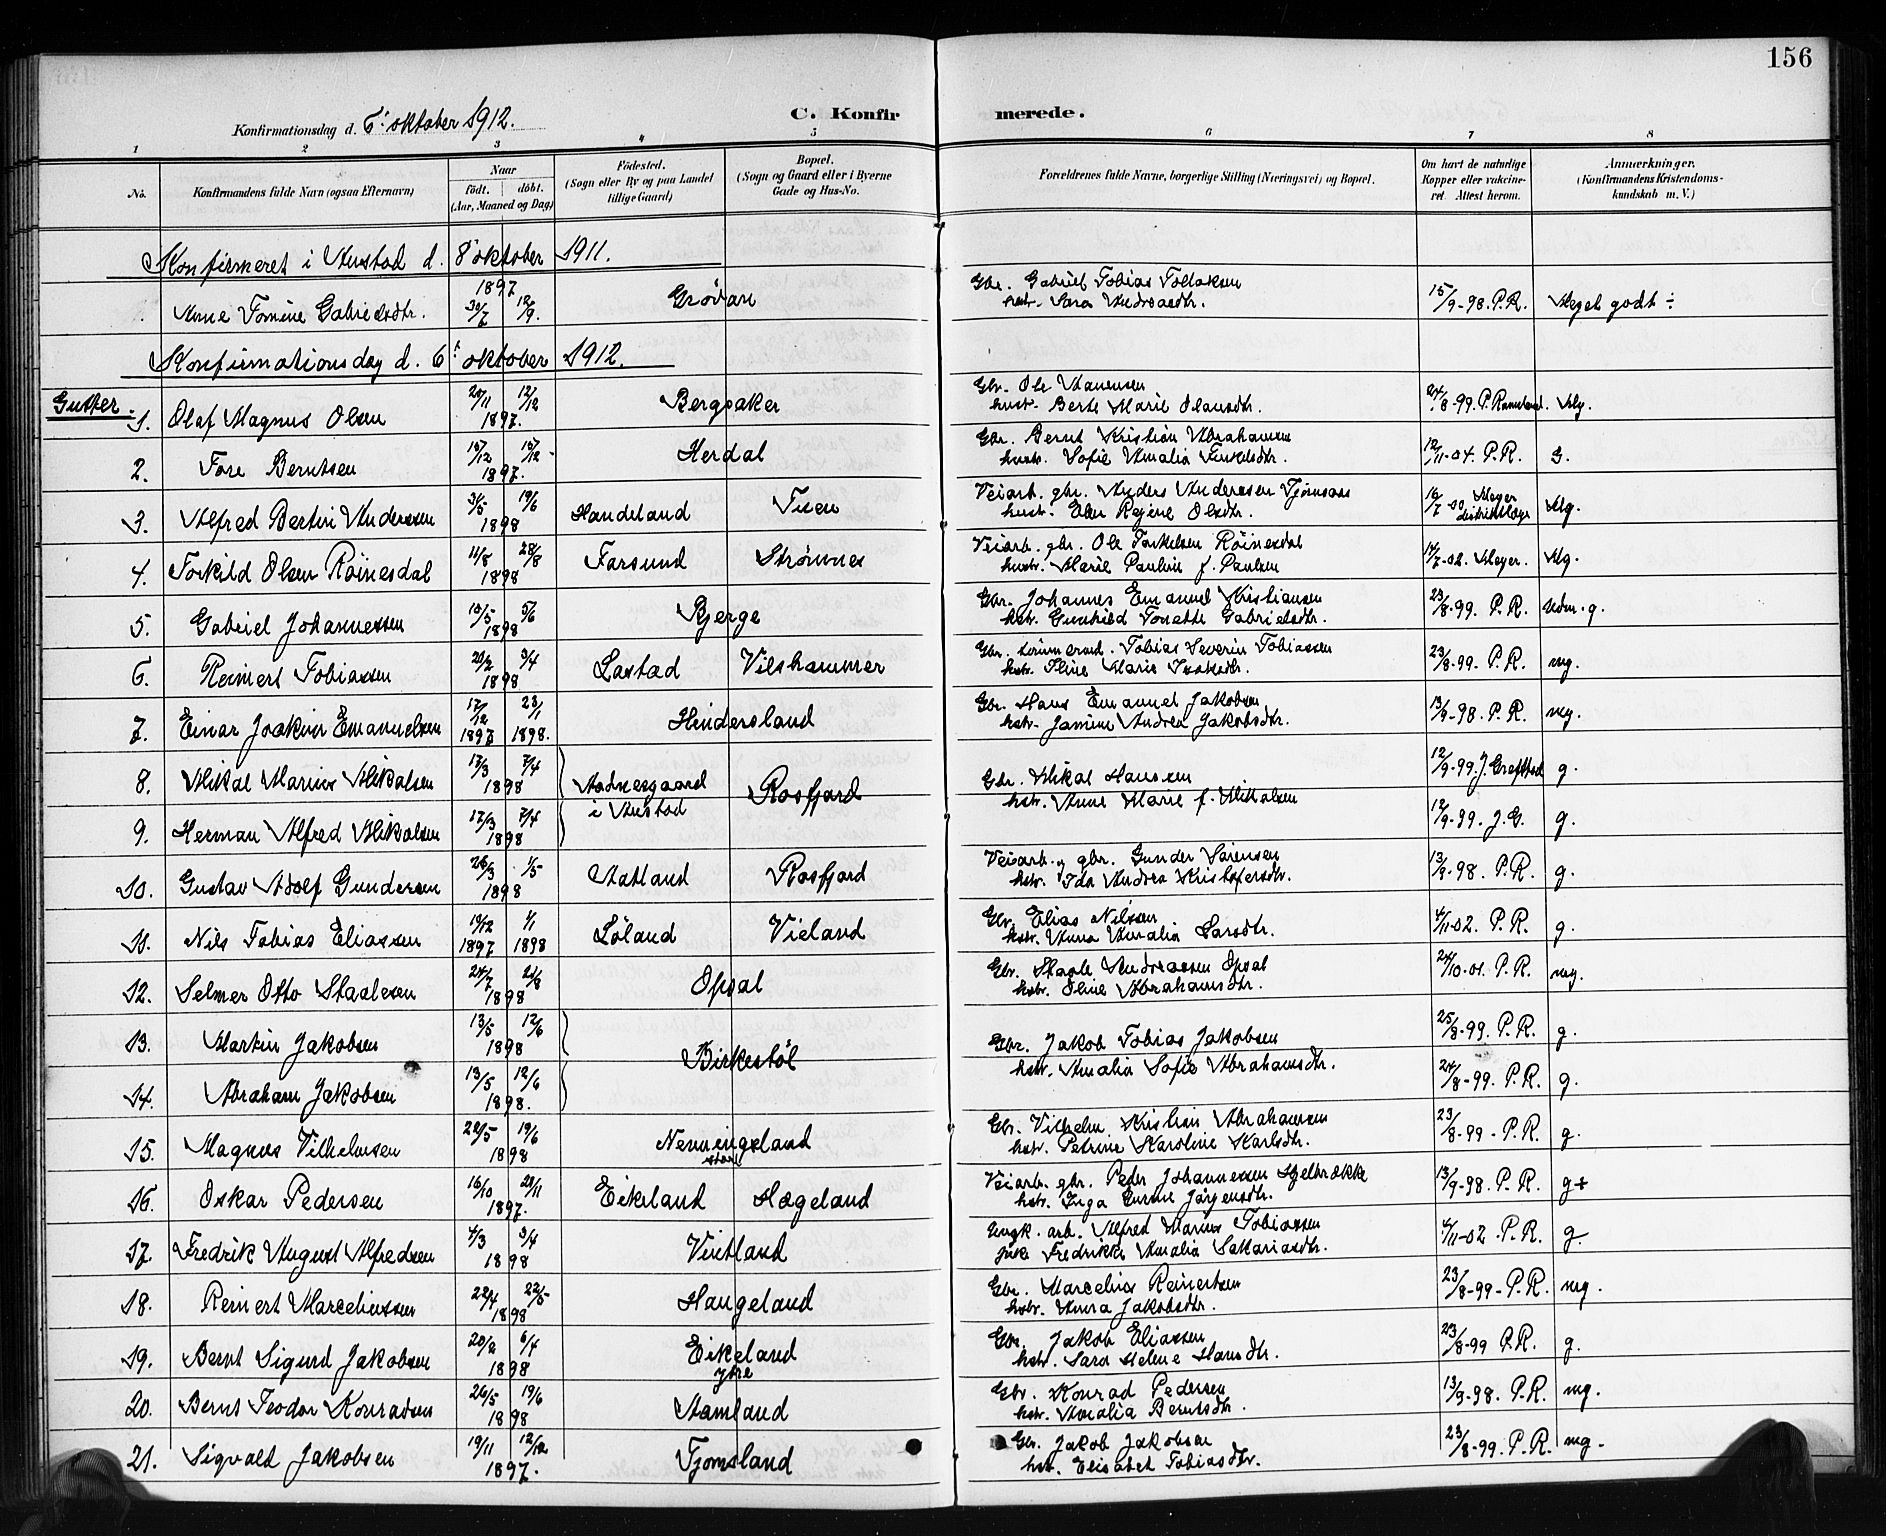 156
Konfirmationsdag d. 6' oktober 1912.
C. Konfirmerede.
1 2 3 4 5 6 7 8
No.
Konfirmandens fulde Navn (ogsaa Efternavn)
Naar
født. døbt.
(Aar, Maaned og Dag)
Fødested.
(Sogn eller By og paa Landet
tillige Gaard)
Bopæl.
(Sogn og Gaard eller i Byerne
Gade og Hus-No.
Forældrenes fulde Navne, borgerlige Stilling (Næringsvei) og Bopæl.
Om havt de naturlige
Kopper eller vaccine-
ret. Attest herom.
Anmærkninger.
(Konfirmandens Kristendoms-
kundskab m. V.)
Konfirmeret i Austad d. 8' oktober 1911.
Anne Tomine Gabrielsdtr. 30/7 12/9. 1897 Grøvan Gbr. Gabriel Tobias Tollaksen
hustr. Sara Andreasdtr. 15/9-98. P.R. Meget godt ÷
Konfirmationsdag d. 6' oktober 1912.
Gutter.
1. Olaf Magnus Olsen 20/11 12/12 1897. Bergsaker Gbr. Ole Hansen
hustr. Berte Marie Olausdtr. 24/8-99. P. Mg.
2. Tore Berntsen 15/12 1897. Herdal Gbr. Bernt Kristian Abrahamsen
hustr. Sofie Amalia 12/11-04. P.R. g.
3. Alfred Bertin Andersen 31/5 19/6 1898 Handeland Tisen Veiarb. gbr. Anders Andersen
hustr. Elen Regine Olsdtr. 16/7-00 Meyer
distriktslæge Mg.
4. Torkild Olsen Röinesdal 11/8 28/8 1898 Farsund Strømnes Veiarb. gbr. Ole Torkelsen Röinesdal
hustr. Marie Pauline f. Paulsen 14/7-02. Meyer. Mg.
5. Gabriel Johannessen 15/5 5/6 1898 Bjerge Gbr. Johannes Emanuel Kristiansen
hstr. Gunhild Tonette Gabrielsdtr. 23/8-99. P.R. Udm. g.
6. Reinert Tobiassen 20/2 3/4 1898 Lastad Vilshammer Gbr. tømmermd. Tobias Severin Tobiassen
hstr. Marie Isaksdtr. 23/8-99. P.R. mg.
7. Einar Joakim Emanuelsen 17/12 23/1 1897 1898. Hindersland Gbr. Hans Emanuel Jakobsen
hstr. Jamine Andrea Jakobsdtr. 13/9-98. P.R. mg.
8. Mikal Marius Mikalsen 17/3 7/4 1898 Aadnesgaard
i Austad Rosfjord Gbr. Mikal Hansen
hstr. Anne Marie f. Mikalsen 12/9-99. J. g.
9. Herman Alfred Mikalsen 17/3 7/4 1898 12/9-99. J.G. g.
10. Gustav Adolf Gundersen 26/3 1/5 1898 Aatland Rosfjord Veiarb. og gbr. Gunder Sørensen
hstr. Ida Andrea Kristofersdtr. 13/9-98. P.R. g.
11. Nils Tobias Eliassen 19/12 1/1 1897 1898 Løland Vieland Gbr. Elias Nilssen
hstr. Anna Amalia Larsdtr. 4/11-02. P.R. g.
12. Selmer Otto Staalesen 24/7 21/8 1898 Opsal Gbr. Staale Andreassen Opsal
hstr. Oline Abrahamsdtr. 24/10-01. P.R. mg.
13. Martin Jakobsen 13/5 12/6 1898 Birkestöl Gbr. Jakob Tobias Jakobsen
hstr. Amalia Sofie Abrahamsdtr. 25/8-99. P.R. g.
14. Abraham Jakobsen 13/5 12/6 1898. 24/8-99. P.R. g.
15. Magnus Vilhelmsen 22/5 19/6 1898 Nenningsland
store Gbr. Vilhelm Kristian Abrahamsen
hstr. Petrine Karoline Karlsdtr. 23/8-99 - P.R. g.
16. Oskar Pedersen 16/10 21/11 1897. Eikeland Hægeland Veiarb. gbr. Peder Johannessen
hstr. Inga Jörgensdtr. 13/9-98. P.R. g+
17. Fredrik August Alfredsen 4/3 3/4 1898 Vintland Ungk. arb. Alfred Marius Tobiassen
pike Fredrikke Amalia Sakariasdtr. 4/11-02. P.R. g.
18. Reinert Marceliussen 22/4 22/5 1898 Haugeland Gbr. Marcelius Reinertsen
hstr. Anna Jakobsdtr. 23/8-99 - P.R. mg.
19. Bernt Sigurd Jakobsen 20/2 6/4 1898 Eikeland
ytre Gbr. Jakob Eliassen
hstr. Sara Helene Hansdtr. 23/8-99 P.R. g.
20. Bernt Teodor Konradsen 26/5 19/6 1898 Aamland Gbr. Konrad Pedersen
hstr. Amalia Berntsdtr. 13/9-98. P.R. mg.
21. Sigvald Jakobsen 19/11 12/12 1897. Tjomsland Gbr. Jakob Jakobsen
hst. Elisabet Tobiasdtr. 23/8-99. P.R. mg.